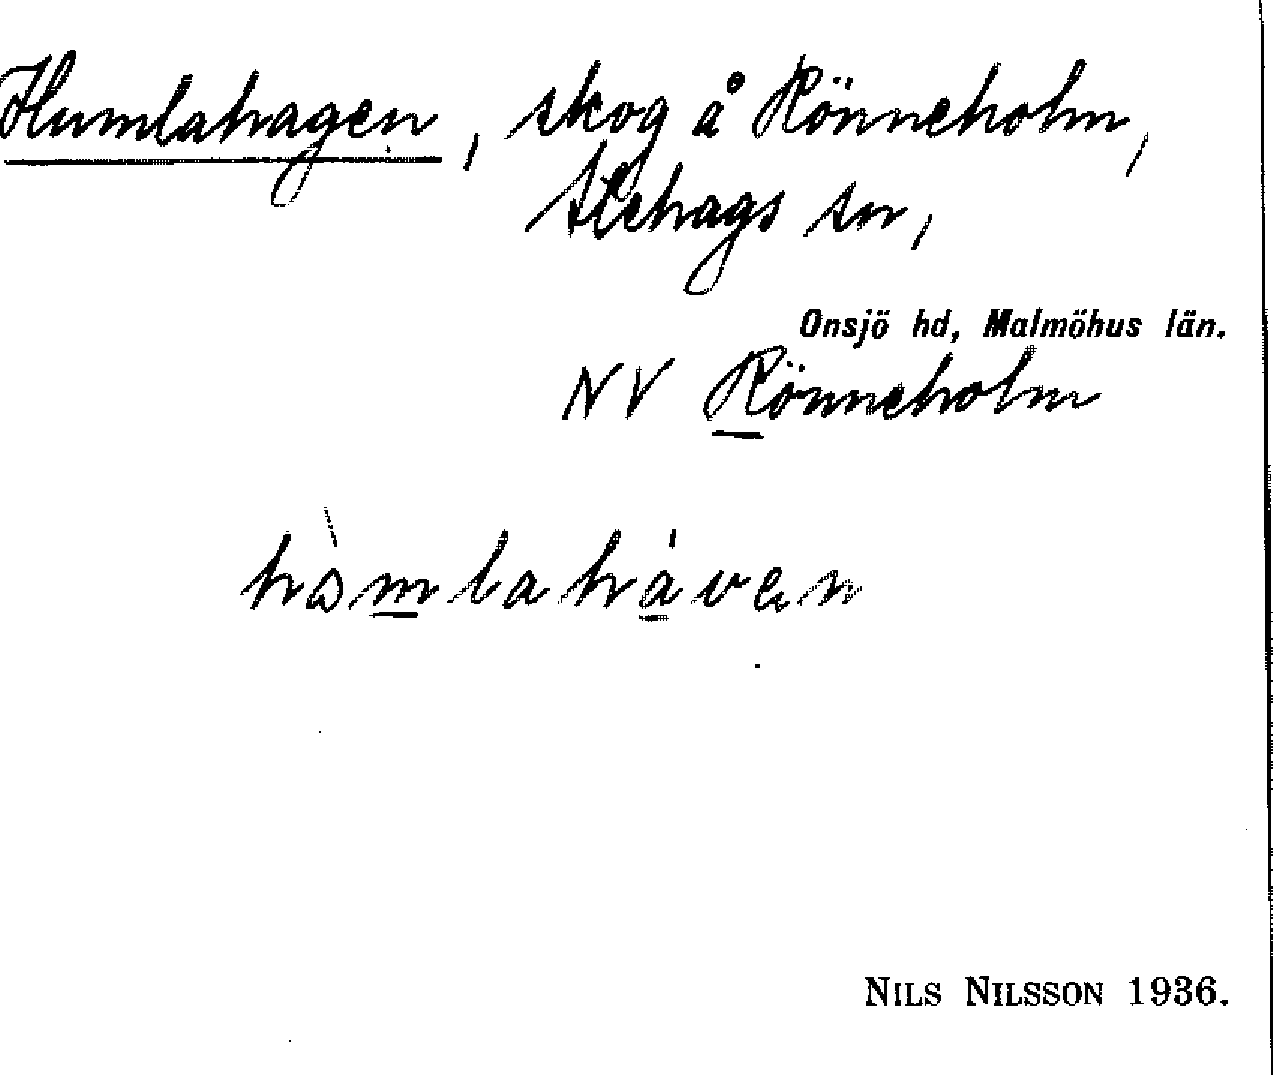 Humlahagen, skog å Rönneholm,
Stehags sn,
Onsjö hd, Malmöhus län.
NV Rönneholm
NILS NILSSON 1936.